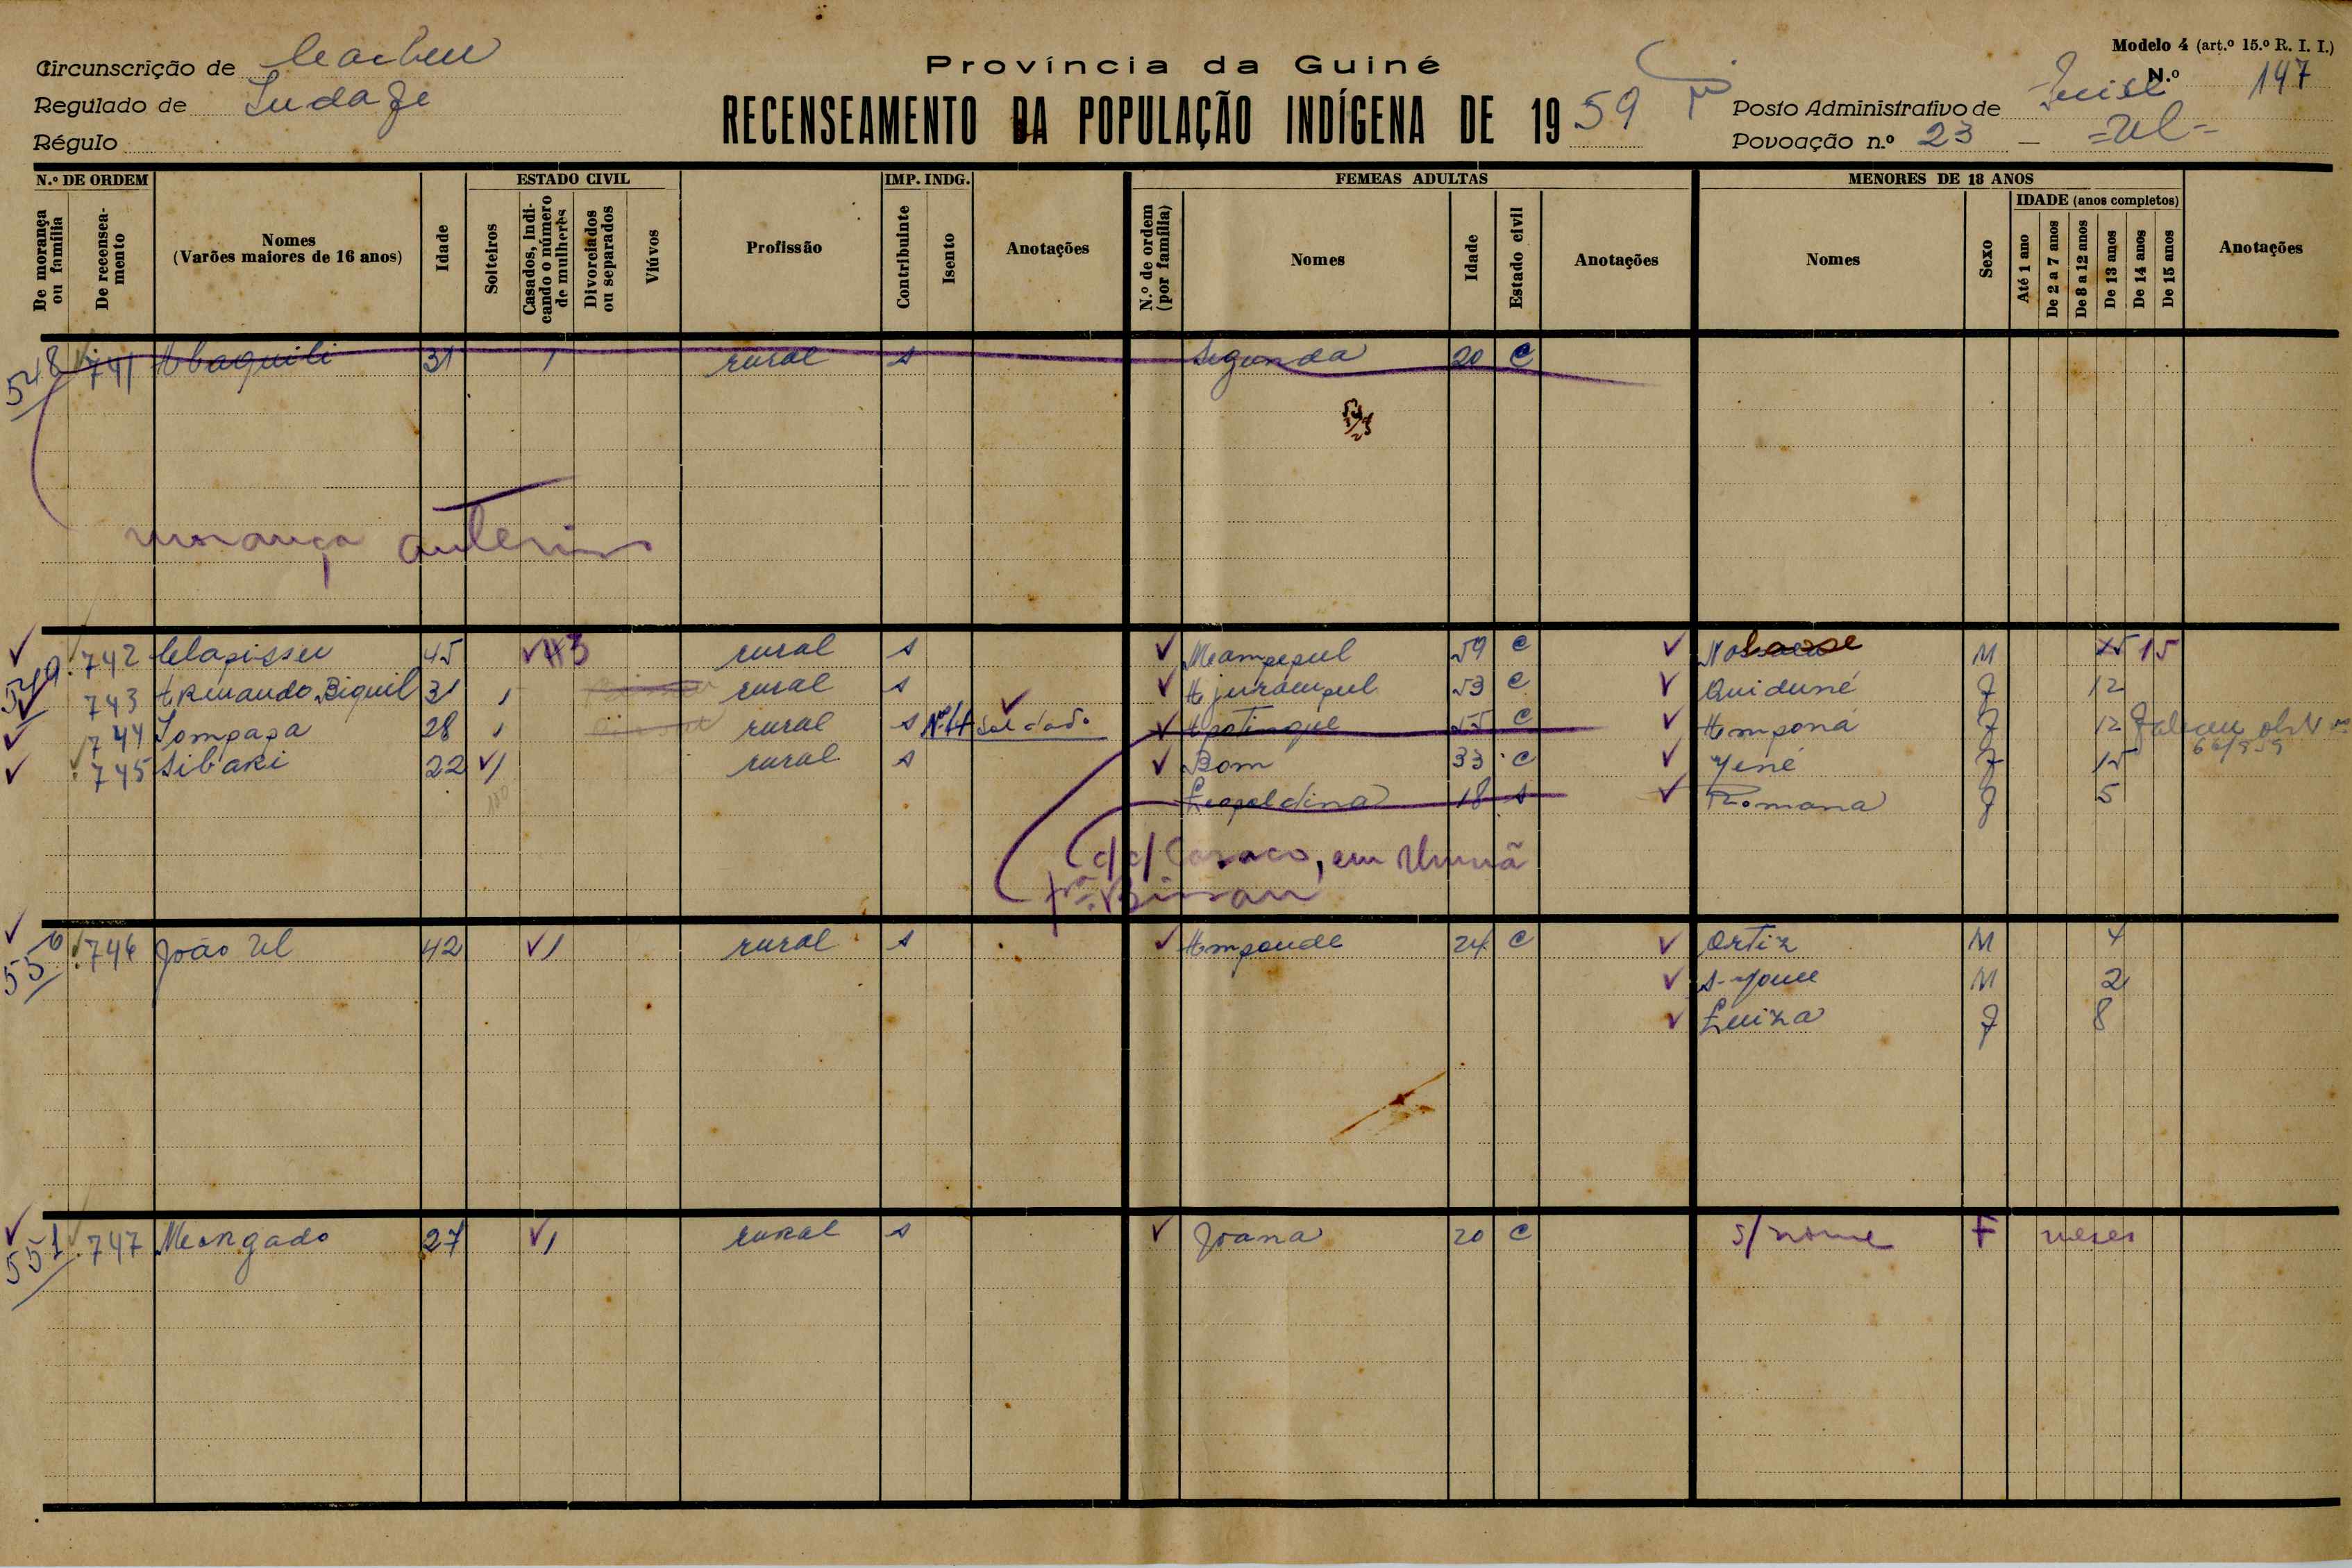 Circunscrição de Cacheu
Regulado de
Régulo
Província da Guiné
RECENSEAMENTO DA POPULAÇÃO INDÍGENA DE 1959
Modelo 4 (art.º 15.º R. I. I.)
N.º 147
Posto Administrativo de
Povoação n.º 23 — =Ul=
N.º DE ORDEM
De morança ou família
De recenseamento
Nomes
(Varões maiores de 16 anos)
Idade
ESTADO CIVIL
Solteiros
Casados, indicando o número de mulheres
Divorciados ou separados
Viúvos
Profissão
IMP. INDG.
Contribuinte
Isento
Anotações
FEMEAS ADULTAS
N.º de ordem (por família)
Nomes
Idade
Estado civil
Anotações
MENORES DE 18 ANOS
Nomes
Sexo
IDADE (anos completos)
Até 1 ano
De 2 a 7 anos
De 8 a 12 anos
De 13 anos
De 14 anos
De 15 anos
Anotações
548 741 31 1 rural s Segunda 20 C
morança anterior
549 742 45 3 rural s 59 C M 15 15
743 Armando Biquil 31 1 rural s 53 C Quiduné F 12
744 28 1 rural s soldado 55 C Amponá F 12
745 Sibaki 22 1 rural s Bom 33 C Yené F 15
Leopoldina 18 s Romana F 5
550 746 João Ul 42 1 rural s 24 C Ortiz M 4
M 2
Luiza F 8
551 747 Morgado 27 1 rural s Joana 20 C s/nome F meses